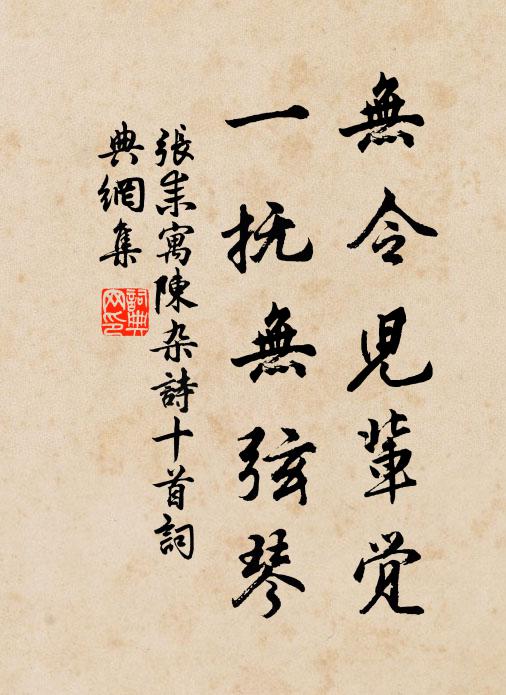 無令児輩觉
一抚無弦琴
張耒寓陳杂詩十首詞
典網集
詞典网印